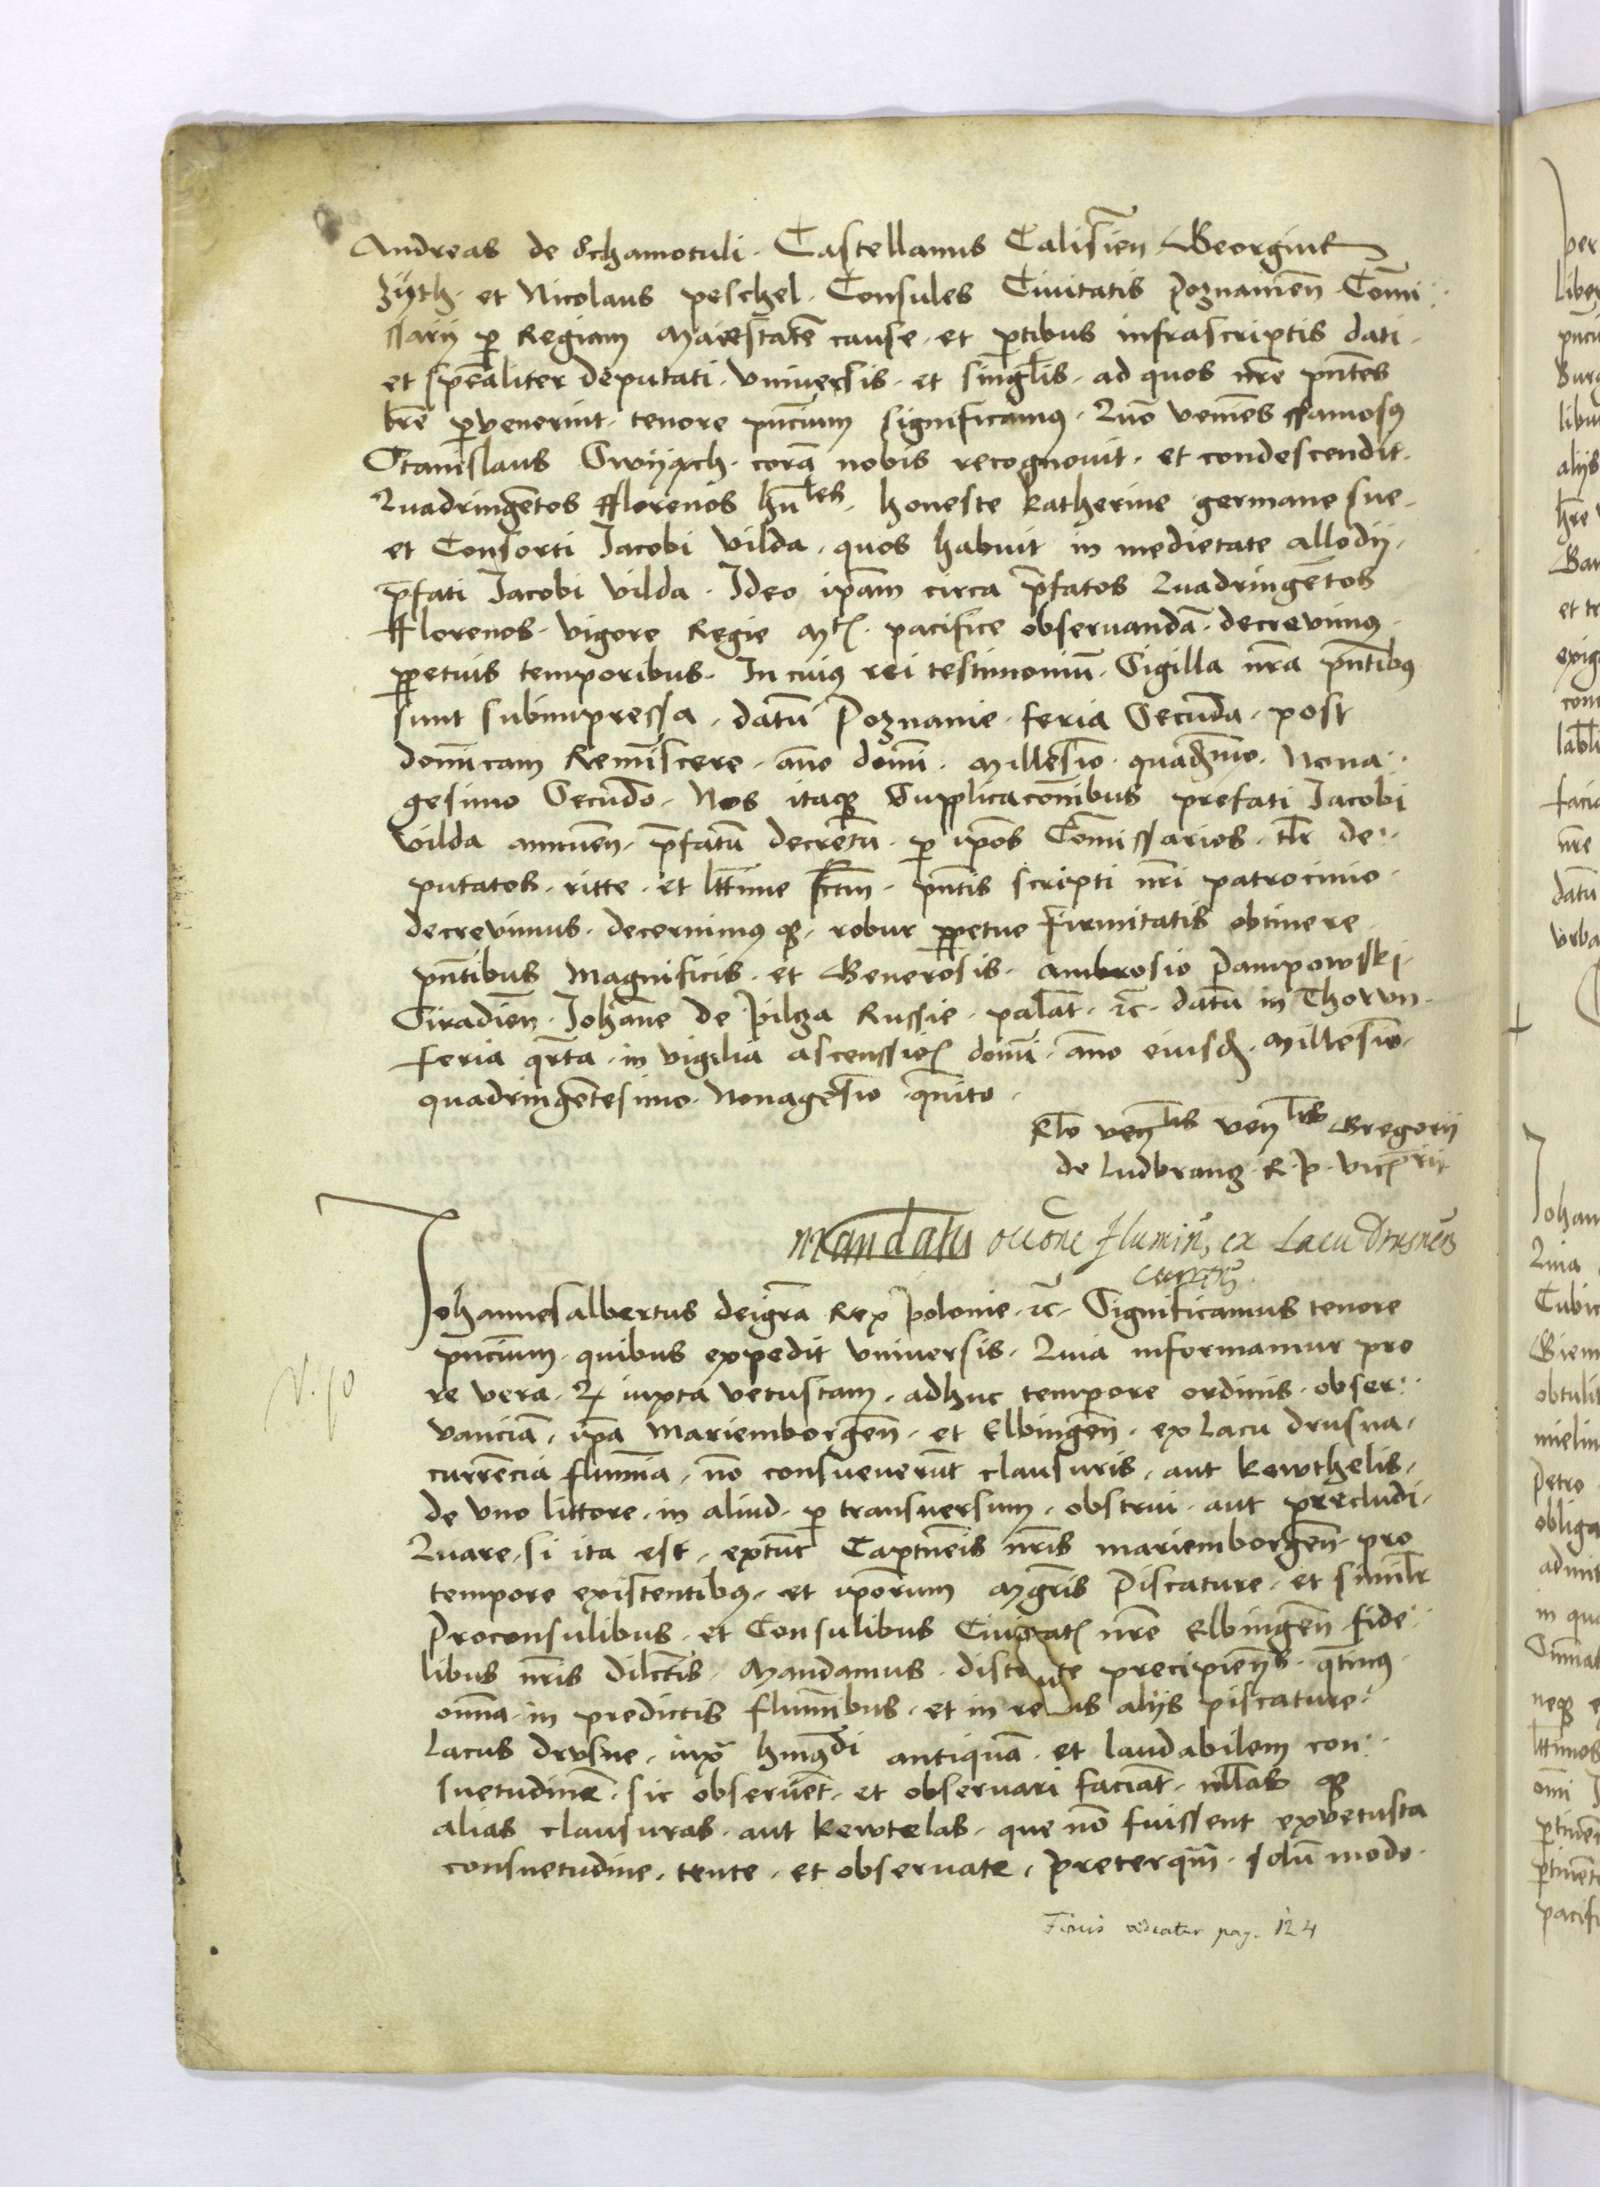 Andreas de Schamotuli · Castellanus Calisien̄ Georgius
Zÿth · et Nicolaus peschel · Consules Ciuitatis poznanien̄ Com̄i
ssarij ꝑ Regiam Maiestatē cause · et ꝑtibus infrascriptis dati ·
et spēaliter deputati · vniuersis · et singl̄is · ad quos nr̄e pn̄tes
lr̄e ꝑvenerint · tenore pn̄cium significamꝰ · Quō veniēs ffamosꝰ
Stanislaus Swÿ · corā nobis recognouit · et condescendit ·
Quadringētos fflorenos hn̄les · honeste katherine germane sue ·
et Consorti Jacobi vilda · quos habuit in medietate allodij ·
p̄fati Jacobi vilda · Ideo ip̄am circa p̄fatos Quadringētos
fflorenos · vigore Regie Mtꝭ · pacifice obseruandā · decrevimꝰ ·
ꝑpetuis temporibus · In cuiꝰ rei testimoniū · Sigilla nr̄a pn̄tibꝰ
sunt subimpressa · datū Poznanie · feria Secūda · post
domīcam Remīscere · ān̄o domī · Millesīo · quadr̄mo · Nona
gesimo Secūdo · Nos itaqꝫ Supplicacōnibus prefati Jacobi
vilda annuen̄ · p̄fatū decretū · ꝑ ip̄os Com̄issarios · tl̄r de
putatos · ritte · et ltt̄ime fct̄m · pn̄tis scripti nr̄i patrocinio ·
decrevimus · decernimꝰqꝫ · robur ꝑpetue firmitatis obtinere
pn̄tibus Magnificis · et Generosis · ambrosio Pampowski ·
Siradien̄ · Johāne de pilcza Russie · palat̄ · ⁊c̄ · datū in Thorvn ·
feria qr̄ta · in vigilia ascenssioꝭ domī · ān̄o eiusdꝫ · Millesīo ·
quadringētesimo · Nonagesīo · qn̄ito ·
Rl̄o ven̄lis ven̄lis Gregorij
de ludbrancz · R · p · vicꝑrij
Mandatū occōne flumin̄, ex Lacu Drusnen̄
currn̄
Johannesalbertus deigr̄a Rex polonie · ⁊c̄ · Significamus tenore
pn̄cium · quibus expedit vniuersis · Quia informamur pro
re vera · Qꝫ iuxta vetustam · adhuc tempore ordinis · obser
vanciā · ip̄a Mariemborgēn · et Elbingēn · ex lacu drusna ·
currēcia flumīa · nō consueuerūt clausuris · aut kewthelis ·
de vno littore · in aliud · ꝑ transuersum · obstrui · aut precludi ·
Quare · si ita est · extūc Capitneis nr̄is mariemborgēn pro
tempore existentibꝰ · et ip̄orum Mgr̄is Piscature · et simil̄r
Proconsulibus · et Consulibus Ciuitatꝭ nr̄e Elbingēn fide
libus nr̄is dilct̄is · Mandamus · districte precipien̄s · qt̄inꝰ
om̄ia · in predictis flumībus · et in rebus alijs piscature
lacus drvsne · iuxᵃ hmōi antiquā · et laudabilem con
suetudinē · sic obseruēt · et obseruari faciāt · nll̄as qꝫ
alias clausuras · aut kewtelas · que nō fuissent ex vetusta
consuetudine · tente · et obseruate · preterqm̄ · solū modo ·
Finis videatur pag. 124